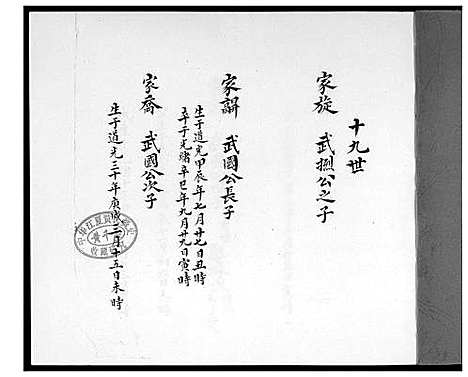 十九世
家旋 武撚公之子
家謌 武國公長子
生于道光甲辰年七月廿七日丑時
卒于光緒辛巳年九月廿九日寅時
家喬 武國公次子
生于道光三十年庚戌二月十五日未時